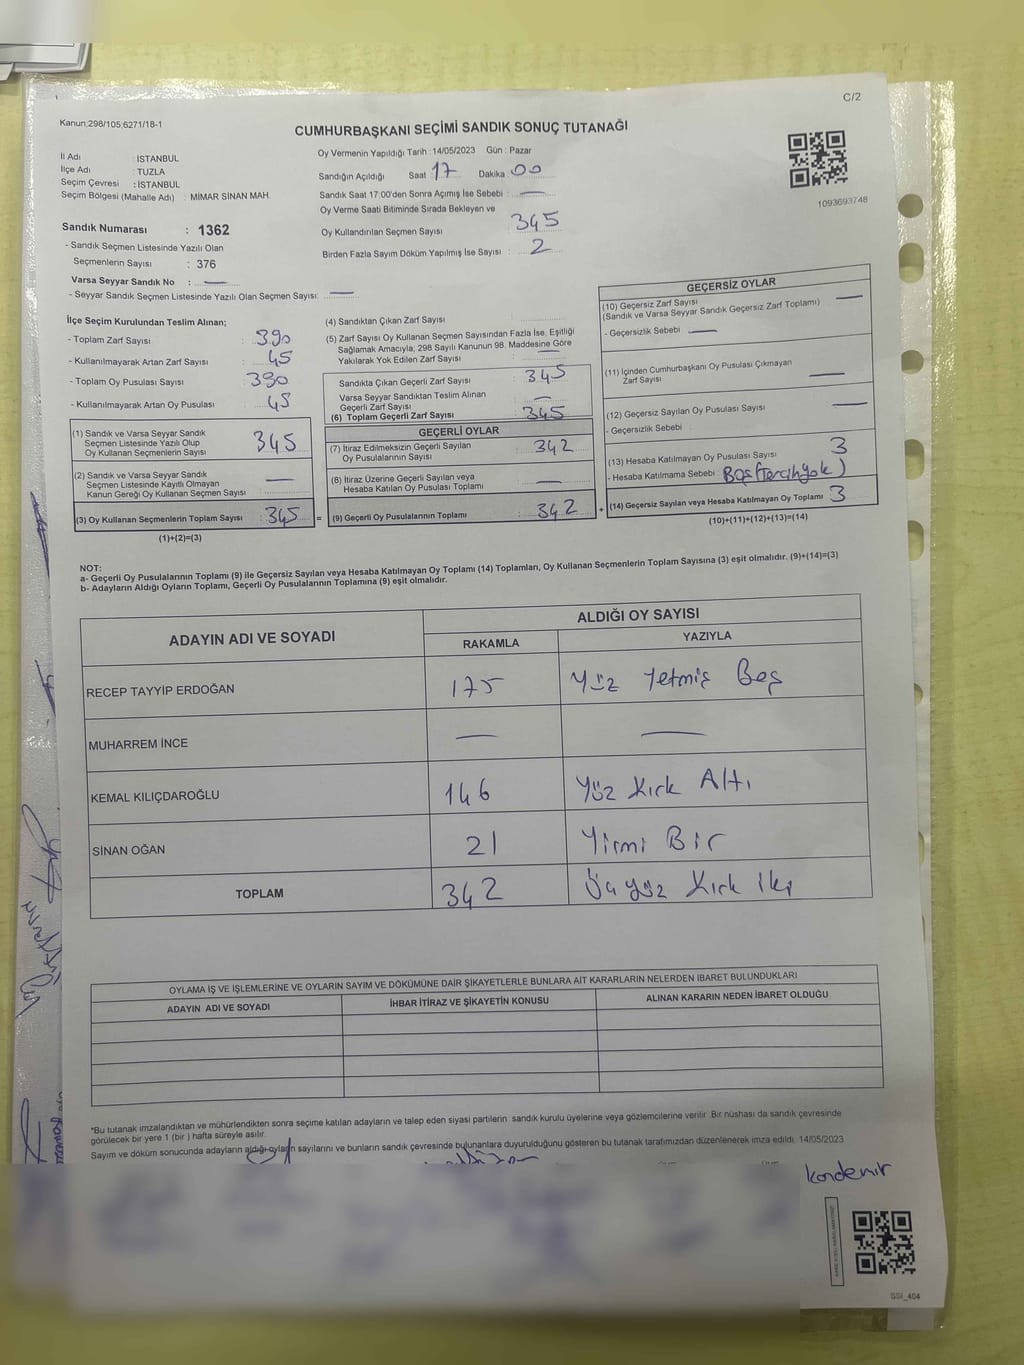 C/2
Kanun;298/105;6271/18-1
CUMHURBAŞKANI SEÇİMİ SANDIK SONUÇ TUTANAĞI
İl Adı : İSTANBUL
İlçe Adı : TUZLA
Seçim Çevresi : İSTANBUL
Seçim Bölgesi (Mahalle Adı) : MİMAR SİNAN MAH.
Sandık Numarası : 1362
- Sandık Seçmen Listesinde Yazılı Olan
Seçmenlerin Sayısı : 376
Varsa Seyyar Sandık No : —
- Seyyar Sandık Seçmen Listesinde Yazılı Olan Seçmen Sayısı: —
Oy Vermenin Yapıldığı Tarih : 14/05/2023 Gün : Pazar
Sandığın Açıldığı Saat 17 Dakika 00
Sandık Saat 17:00'den Sonra Açımış İse Sebebi : —
Oy Verme Saati Bitiminde Sırada Bekleyen ve
Oy Kullandırılan Seçmen Sayısı : 345
Birden Fazla Sayım Döküm Yapılmış İse Sayısı : 2
1093693748
İlçe Seçim Kurulundan Teslim Alınan;
- Toplam Zarf Sayısı : 390
- Kullanılmayarak Artan Zarf Sayısı : 45
- Toplam Oy Pusulası Sayısı : 390
- Kullanılmayarak Artan Oy Pusulası : 45
(1) Sandık ve Varsa Seyyar Sandık
Seçmen Listesinde Yazılı Olup
Oy Kullanan Seçmenlerin Sayısı 345
(2) Sandık ve Varsa Seyyar Sandık
Seçmen Listesinde Kayıtlı Olmayan
Kanun Gereği Oy Kullanan Seçmen Sayısı —
(3) Oy Kullanan Seçmenlerin Toplam Sayısı : 345 =
(1)+(2)=(3)
(4) Sandıktan Çıkan Zarf Sayısı :
(5) Zarf Sayısı Oy Kullanan Seçmen Sayısından Fazla İse, Eşitliği
Sağlamak Amacıyla; 298 Sayılı Kanunun 98. Maddesine Göre
Yakılarak Yok Edilen Zarf Sayısı : —
Sandıkta Çıkan Geçerli Zarf Sayısı : 345
Varsa Seyyar Sandıktan Teslim Alınan
Geçerli Zarf Sayısı : —
(6) Toplam Geçerli Zarf Sayısı : 345
GEÇERLİ OYLAR
(7) İtiraz Edilmeksizin Geçerli Sayılan
Oy Pusulalarının Sayısı : 342
(8) İtiraz Üzerine Geçerli Sayılan veya
Hesaba Katılan Oy Pusulası Toplamı : —
(9) Geçerli Oy Pusulalarının Toplamı : 342 +
GEÇERSİZ OYLAR
(10) Geçersiz Zarf Sayısı —
(Sandık ve Varsa Seyyar Sandık Geçersiz Zarf Toplamı)
- Geçersizlik Sebebi : —
(11) İçinden Cumhurbaşkanı Oy Pusulası Çıkmayan
Zarf Sayısı : —
(12) Geçersiz Sayılan Oy Pusulası Sayısı : —
- Geçersizlik Sebebi :
(13) Hesaba Katılmayan Oy Pusulası Sayısı : 3
- Hesaba Katılmama Sebebi : Boş (tercih yok)
(14) Geçersiz Sayılan veya Hesaba Katılmayan Oy Toplamı : 3
(10)+(11)+(12)+(13)=(14)
NOT:
a- Geçerli Oy Pusulalarının Toplamı (9) ile Geçersiz Sayılan veya Hesaba Katılmayan Oy Toplamı (14) Toplamları, Oy Kullanan Seçmenlerin Toplam Sayısına (3) eşit olmalıdır. (9)+(14)=(3)
b- Adayların Aldığı Oyların Toplamı, Geçerli Oy Pusulalarının Toplamına (9) eşit olmalıdır.
ADAYIN ADI VE SOYADI ALDIĞI OY SAYISI
RAKAMLA YAZIYLA
RECEP TAYYİP ERDOĞAN 175 Yüz Yetmiş Beş
MUHARREM İNCE — —
KEMAL KILIÇDAROĞLU 146 Yüz Kırk Altı
SİNAN OĞAN 21 Yirmi Bir
TOPLAM 342 Üç yüz Kırk iki
OYLAMA İŞ VE İŞLEMLERİNE VE OYLARIN SAYIM VE DÖKÜMÜNE DAİR ŞİKAYETLERLE BUNLARA AİT KARARLARIN NELERDEN İBARET BULUNDUKLARI
ADAYIN ADI VE SOYADI İHBAR İTİRAZ VE ŞİKAYETİN KONUSU ALINAN KARARIN NEDEN İBARET OLDUĞU
*Bu tutanak imzalandıktan ve mühürlendikten sonra seçime katılan adayların ve talep eden siyasi partilerin sandık kurulu üyelerine veya gözlemcilerine verilir. Bir nüshası da sandık çevresinde
görülecek bir yere 1 (bir) hafta süreyle asılır.
Sayım ve döküm sonucunda adayların aldığı oyların sayılarını ve bunların sandık çevresinde bulunanlara duyurulduğunu gösteren bu tutanak tarafımızdan düzenlenerek imza edildi. 14/05/2023
SSI_404